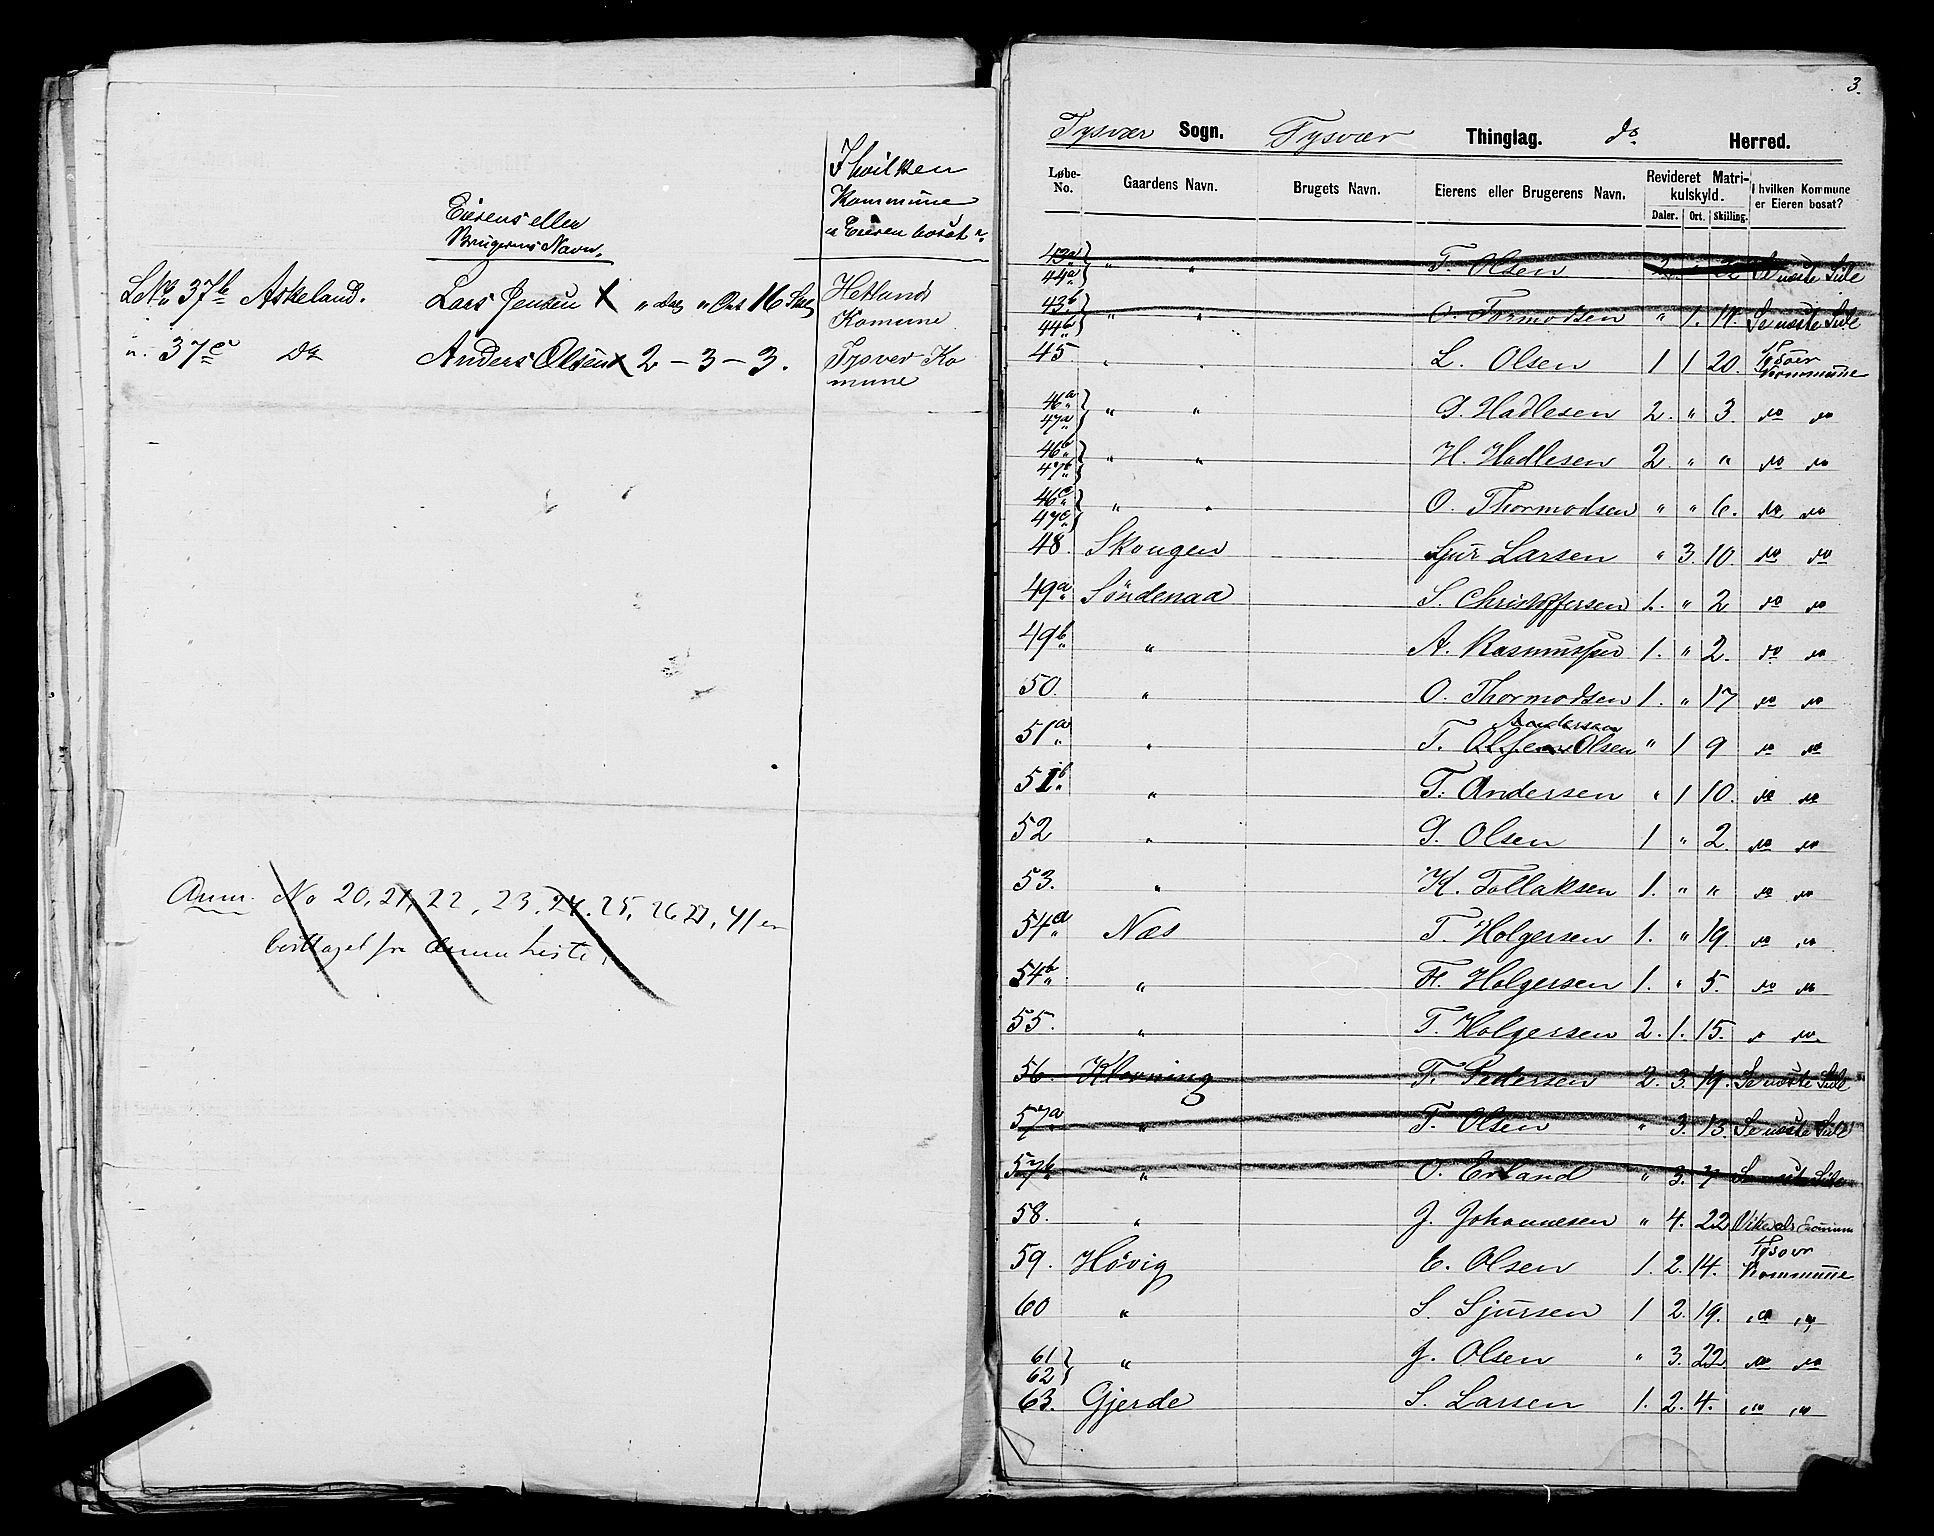 I hvilken
Kommune
er Eieren bosat?
Eierens eller
Brugerens Navn.
LNo 37b Askeland. Lars Jensen X " Dal " Ort 16 Skl Hetland
Komune
" 37c Do Anders Olsen X 2 - 3 - 3. Tysver Ko
mune
Anm. No 20, 21, 22, 23, 24, 25, 26, 27, 41 er
borttaget fra denne Liste.
3.
Tysvær Sogn. Tysvær Thinglag. do Herred.
Løbe-No. Gaardens Navn. Brugets Navn. Eierens eller Brugerens Navn. Revideret Matrikulskyld. Daler. Ort. Skilling. I hvilken Kommune er Eieren bosat?
43a 44a } " " T. Olsen 2. " 22 Se næste Side
43b 44b } " " O. Tormodsen " 1. 11. Se næste Side
45 " " L. Olsen 1 1 20. Tysver Kommune
46a 47a } " " G. Hadlesen 2. " 3. do do
46b 47b } " " H. Hadlesen 2. " " do do
46c 47c } " " O. Thormodsen " " 6. do do
48. Skougen Sjur Larsen " 3. 10. do do
49a Søndenaa S. Christoffersen 1. " 2 do do
49b " A. Rasmussen 1. " 2. do do
50. " O. Thormodsen 1. " 17 do do
Andersen
51a " T. Olsen Olsen " 1 9 do do
51b " T. Andersen " 1 10. do do
52 " G. Olsen 1 " 2. do do
53. " K. Tollaksen 1. " " do do
54a Næs T. Holgersen 1. " 19. do do
54b " H. Holgersen 1. " 5. do do
55. " T. Holgersen 2. 1. 15. " do
56. Kløvning T. Pedersen 2. 3. 19. Se næste Side
57a " T. Olsen " 3. 13. Se næste Side
57b " O. Erland " 3. 7 Se næste Side
58. " J. Johannesen " 4. 22 Vikedals Comune
59. Høvig E. Olsen 1. 2. 14. Tysver Kommune
60 " S. Sjursen 1 2. 19. do "
61 62 } " J. Olsen " 3. 22. do do
63. Gjerde S. Larsen 1. 2. 4. do do